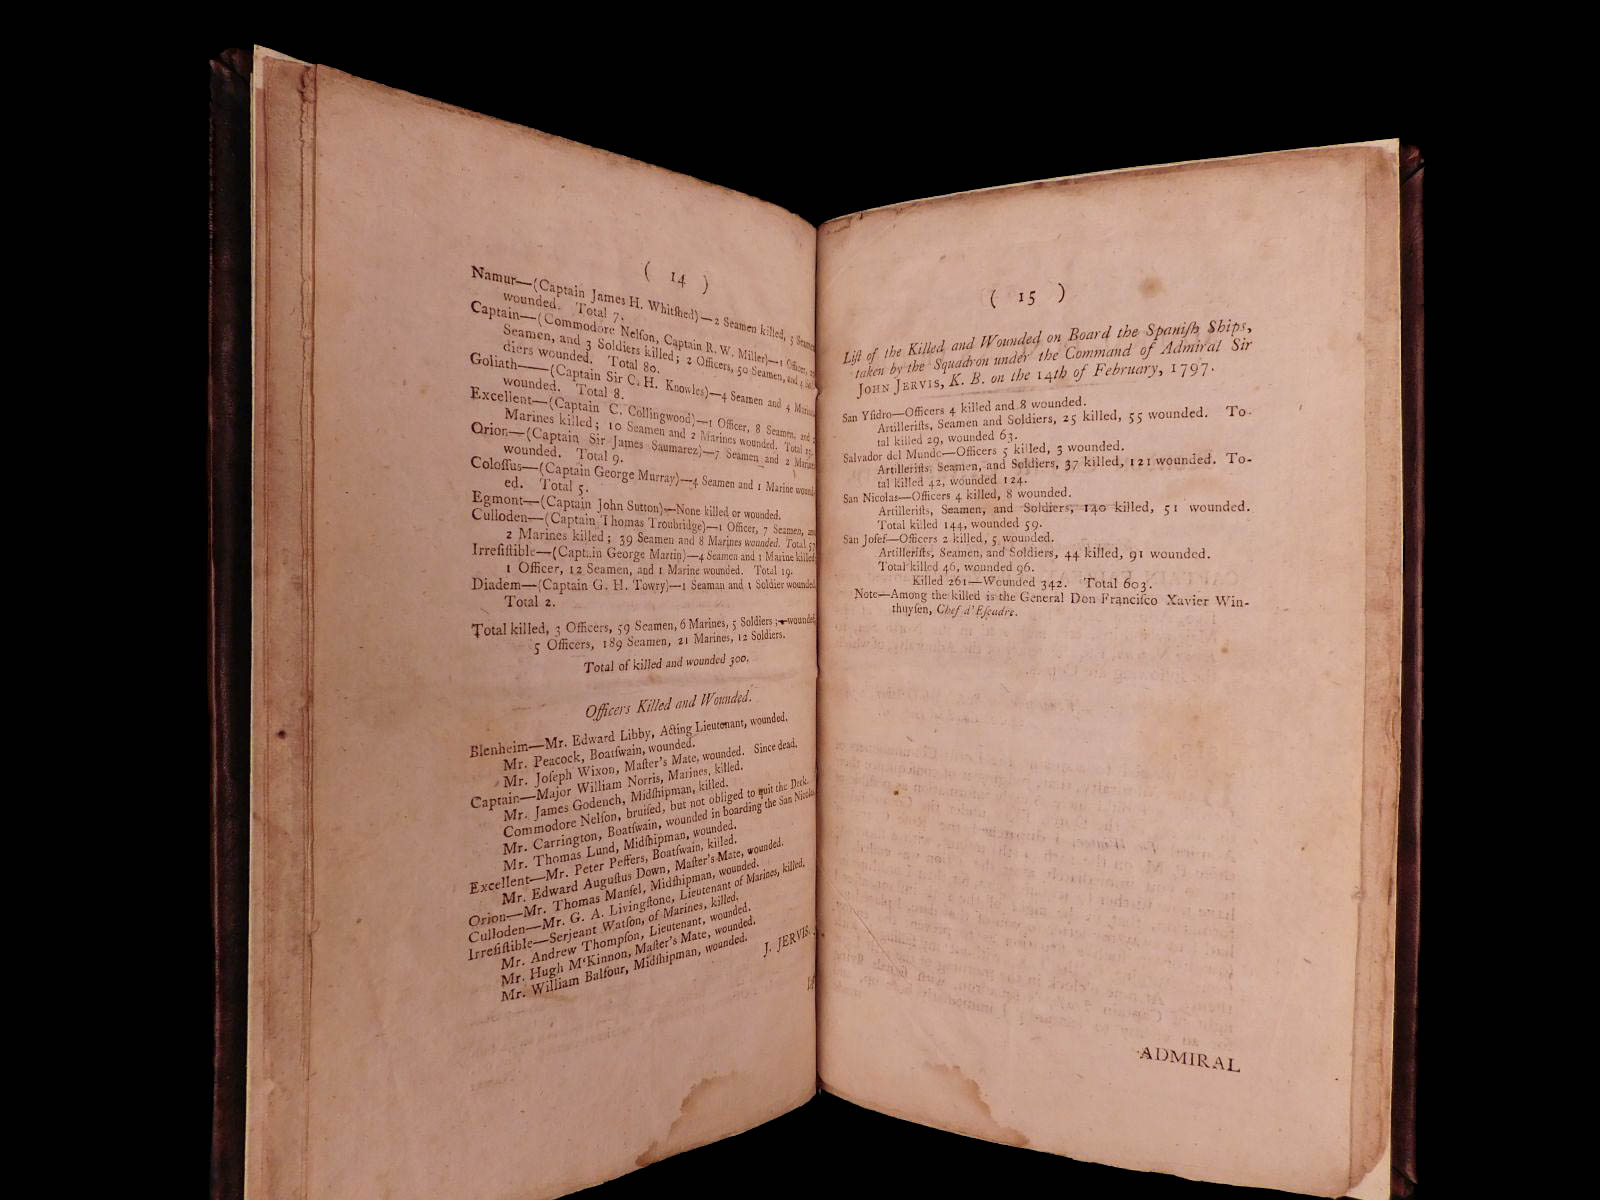 ( 14 )
Namur—(Captain James H. Whitſhed)—2 Seamen killed, 5 Seamen
wounded. Total 7.
Captain—(Commodore Nelſon, Captain R. W. Miller)—1 Officer,
Seamen, and 3 Soldiers killed; 2 Officers, 50 Seamen, and 4 Sol-
diers wounded. Total 80.
Goliath——(Captain Sir C. H. Knowles)—4 Seamen and 4 Marines
wounded. Total 8.
Excellent—(Captain C. Collingwood)—1 Officer, 8 Seamen, and 2
Marines killed; 10 Seamen and 2 Marines wounded. Total 23.
Orion—(Captain Sir James Saumarez)—7 Seamen and 2 Marines
wounded. Total 9.
Coloſſus—(Captain George Murray)—4 Seamen and 1 Marine wound-
ed. Total 5.
Egmont—(Captain John Sutton)—None killed or wounded.
Culloden—(Captain Thomas Troubridge)—1 Officer, 7 Seamen, and
2 Marines killed; 39 Seamen and 8 Marines wounded. Total 57
Irreſiſtible—(Captain George Martin)—4 Seamen and 1 Marine killed;
1 Officer, 12 Seamen, and 1 Marine wounded. Total 19.
Diadem—(Captain G. H. Towry)—1 Seaman and 1 Soldier wounded.
Total 2.
Total killed, 3 Officers, 59 Seamen, 6 Marines, 5 Soldiers;—wounded,
5 Officers, 189 Seamen, 21 Marines, 12 Soldiers.
Total of killed and wounded 300.
Officers Killed and Wounded.
Blenheim—Mr. Edward Libby, Acting Lieutenant, wounded.
Mr. Peacock, Boatſwain, wounded.
Mr. Joſeph Wixon, Maſter's Mate, wounded. Since dead.
Captain—Major William Norris, Marines, killed.
Mr. James Godench, Midſhipman, killed.
Commodore Nelſon, bruiſed, but not obliged to quit the Deck.
Mr. Carrington, Boatſwain, wounded in boarding the San Nicolas.
Mr. Thomas Lund, Midſhipman, wounded.
Excellent—Mr. Peter Peffers, Boatſwain, killed.
Mr. Edward Auguſtus Down, Maſter's Mate, wounded.
Orion—Mr. Thomas Manſel, Midſhipman, wounded.
Culloden—Mr. G. A. Livingſtone, Lieutenant of Marines, killed.
Irreſiſtible—Serjeant Watſon, of Marines, killed.
Mr. Andrew Thompſon, Lieutenant, wounded.
Mr. Hugh M'Kinnon, Maſter's Mate, wounded.
Mr. William Balfour, Midſhipman, wounded.
J. JERVIS.
( 15 )
Liſt of the Killed and Wounded on Board the Spaniſh Ships,
taken by the Squadron under the Command of Admiral Sir
JOHN JERVIS, K. B. on the 14th of February, 1797.
San Yſidro—Officers 4 killed and 8 wounded.
Artilleriſts, Seamen and Soldiers, 25 killed, 55 wounded. To-
tal killed 29, wounded 63.
Salvador del Mundo—Officers 5 killed, 3 wounded.
Artilleriſts, Seamen, and Soldiers, 37 killed, 121 wounded. To-
tal killed 42, wounded 124.
San Nicolas—Officers 4 killed, 8 wounded.
Artilleriſts, Seamen, and Soldiers, 140 killed, 51 wounded.
Total killed 144, wounded 59.
San Joſef—Officers 2 killed, 5 wounded.
Artilleriſts, Seamen, and Soldiers, 44 killed, 91 wounded.
Total killed 46, wounded 96.
Killed 261—Wounded 342. Total 603.
Note—Among the killed is the General Don Franciſco Xavier Win-
thuyſen, Chef d'Eſcadre.
ADMIRAL